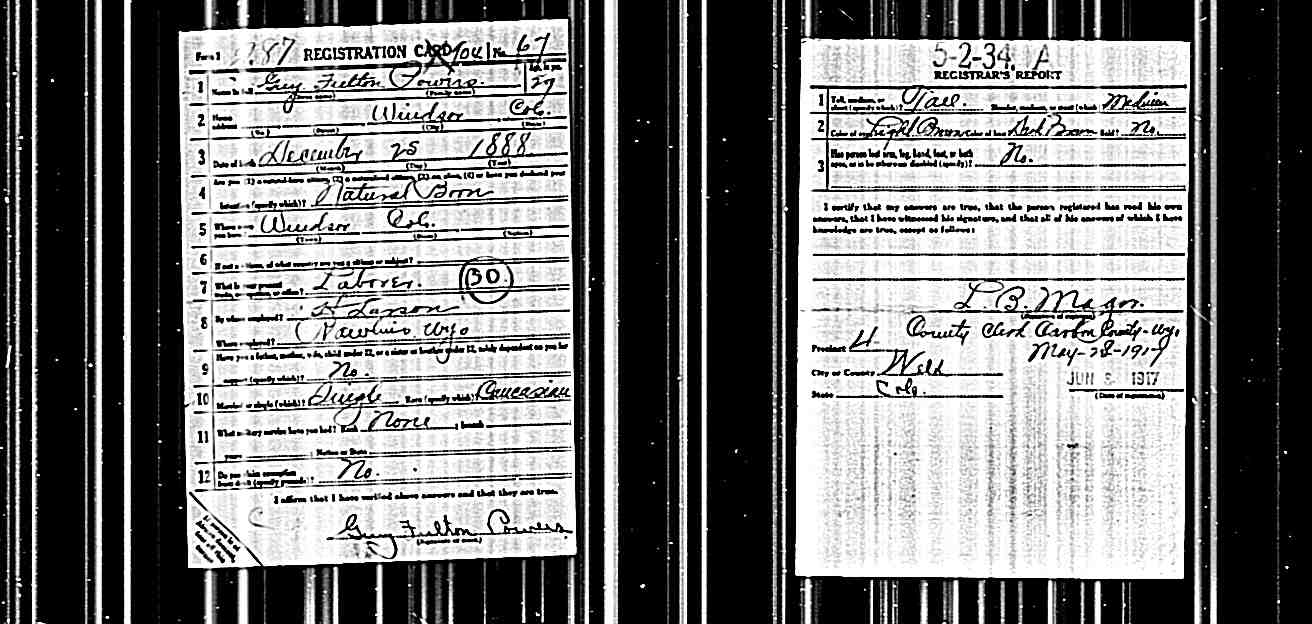 Form 1 287 REGISTRATION CARD 104 No. 67
1 Name in full Guy Fulton Powers Age, in yrs. 27
(Given name) (Family name)
2 Home address Windsor Colo.
(No.) (Street) (City) (State)
3 Date of birth December 25 1888
(Month) (Day) (Year)
Are you (1) a natural-born citizen, (2) a naturalized citizen, (3) an alien, (4) or have you declared your
4 intention (specify which)? Natural Born
5 Where were you born? Windsor Colo.
(Town) (State) (Nation)
6 If not a citizen, of what country are you a citizen or subject?
7 What is your present trade, occupation, or office? Laborer. 30
8 By whom employed? H Larson
Where employed? Rawlins Wyo
Have you a father, mother, wife, child under 12, or a sister or brother under 12, solely dependent on you for
9 support (specify which)? No.
10 Married or single (which)? Single Race (specify which)? Caucasian
11 What military service have you had? Rank None ; branch
years ; Nation or State
12 Do you claim exemption from draft (specify grounds)? No.
I affirm that I have verified above answers and that they are true.
Guy Fulton Powers
(Signature or mark)
5-2-34. A
REGISTRAR'S REPORT
1 Tall, medium, or short (specify which)? Tall. Slender, medium, or stout (which)? Medium
2 Color of eyes Light Brown Color of hair Dark Brown Bald? No.
3 Has person lost arm, leg, hand, foot, or both eyes, or is he otherwise disabled (specify)? No.
I certify that my answers are true, that the person registered has read his own
answers, that I have witnessed his signature, and that all of his answers of which I have
knowledge are true, except as follows:
L. B. Magor.
(Signature of registrar)
County Clerk Carbon County-Wyo
Precinct 4 May-28-1917
City or County Weld
State Colo. JUN 5 1917
(Date of registration)